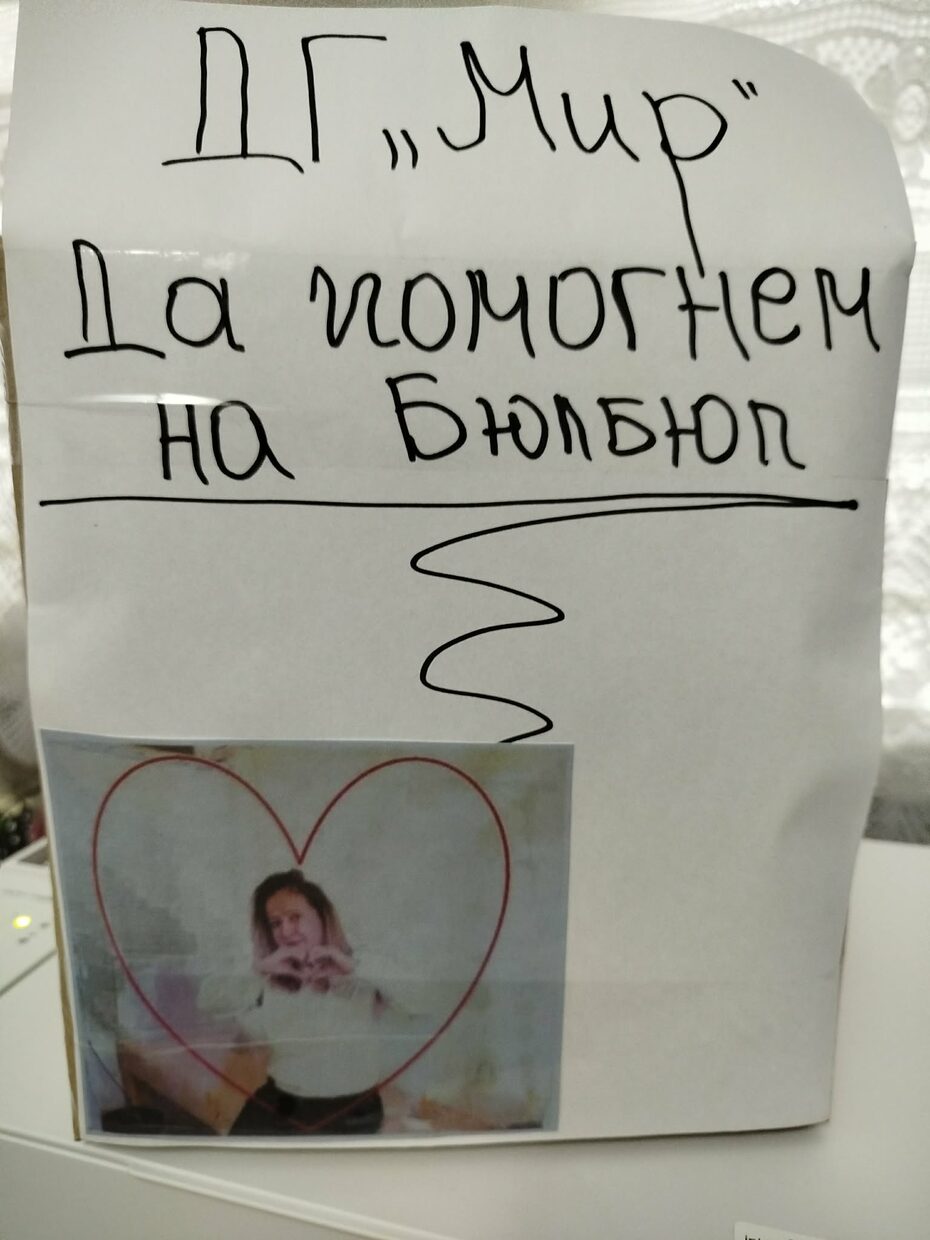 ДГ „Мир“
Да помогнем
на Бюлбюл